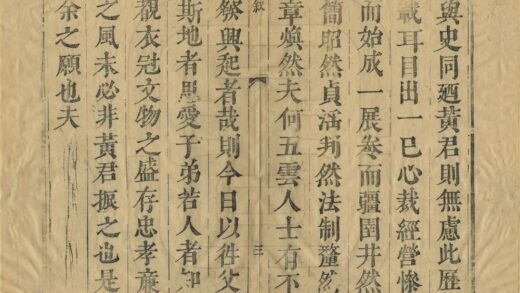 與史同廼黃君則無慮此歷
載耳目出一巳心裁經營慘
而始成一展卷而疆圉井然
簡昭然貞滛判然法制釐然
章煥然夫何五雲人士有不
敘
三
興起者哉則今日以徃父
斯地者思愛子弟若人者知
觀衣冠文物之盛存忠孝亷
之風未必非黃君振之也是
余之願也夫